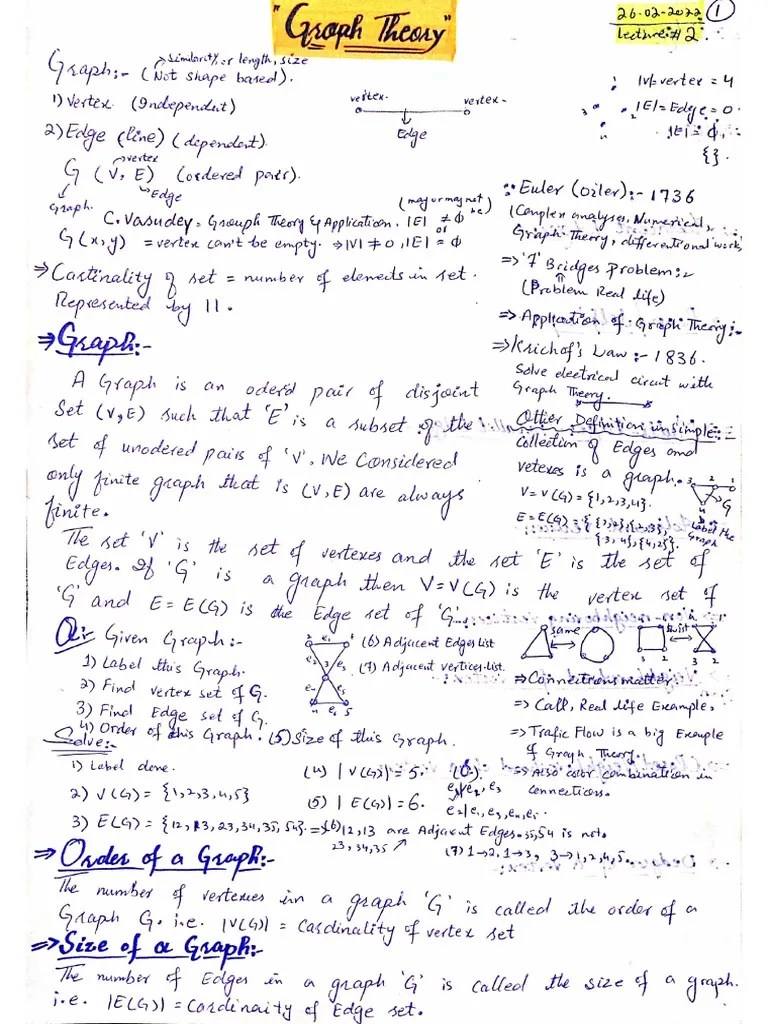 "Graph Theory"
26-02-2022 ①
Lecture:# 2.
Graph:- (Not shape based).
similarity or length, size
1) Vertex (Independent)
2) Edge (line) (dependent).
G (V, E) (ordered pair).
vertex
Edge
Graph.
vertex. vertex.
Edge
|V|=vertex = 4
|E|=Edge = 0.
|E|= ϕ,
{}.
C. Vasudev = Grouph Theory & Application. |E| ≠ ϕ
(may or may not be)
or
G(x,y) = vertex can't be empty. ⇒ |V| ≠ 0, |E| = ϕ
⇒ Cartinality of set = number of elements in set.
Represented by ||.
Euler (oiler):- 1736
(Complex analyses, Numerical,
Graph Theory, differentional work,
⇒ '7' Bridges Problem:-
(Problem Real life)
⇒ Application of Graph Theory:-
⇒ Krichof's Law:- 1836.
Solve electrical circuit with
Graph Theory.
⇒ Graph:-
A Graph is an oder'd pair of disjoint
Set (V,E) such that 'E' is a subset of the
set of unodered pairs of 'V'. We Considered
only finite graph that is (V,E) are always
finite.
Other Definition in simple:-
collection of Edges and
vetexes is a graph.
V = V(G) = {1,2,3,4}.
E = E(G) = {{1,2},{2,3},
{3,4},{4,2}}.
3 2 1
G
Label the
Graph
The set 'V' is the set of vertexes and the set 'E' is the set of
Edges. If 'G' is a graph then V=V(G) is the vertex set of
'G' and E = E(G) is the Edge set of 'G'.
Q: Given Graph:-
1) Label this Graph.
2) Find vertex set of G.
3) Find Edge set of G.
4) Order of this Graph. (5) Size of this Graph.
(6) Adjacent Edges List
(7) Adjacent vertices list.
same
⇒ Connections matter
⇒ Call, Real life Example,
⇒ Trafic Flow is a big Example
of Graph Theory.
⇒ Also color combination in
connections.
Solve:-
1) Label done.
2) V(G) = {1,2,3,4,5}
3) E(G) = {12, 13, 23, 34, 35, 54}.
(4) |V(G)| = 5.
(5) |E(G)| = 6.
(6) 12,13 are Adjacent Edges. 35,54 is not.
23, 34,35
(7) 1→2, 1→3, 3→1,2,4,5.
⇒ Order of a Graph:-
The number of vertexies in a graph 'G' is called the order of a
Graph G. i.e. |V(G)| = Cardinality of vertex set
⇒ Size of a Graph:-
The number of Edges in a graph 'G' is called the size of a graph.
i.e. |E(G)| = Cardinaity of Edge set.